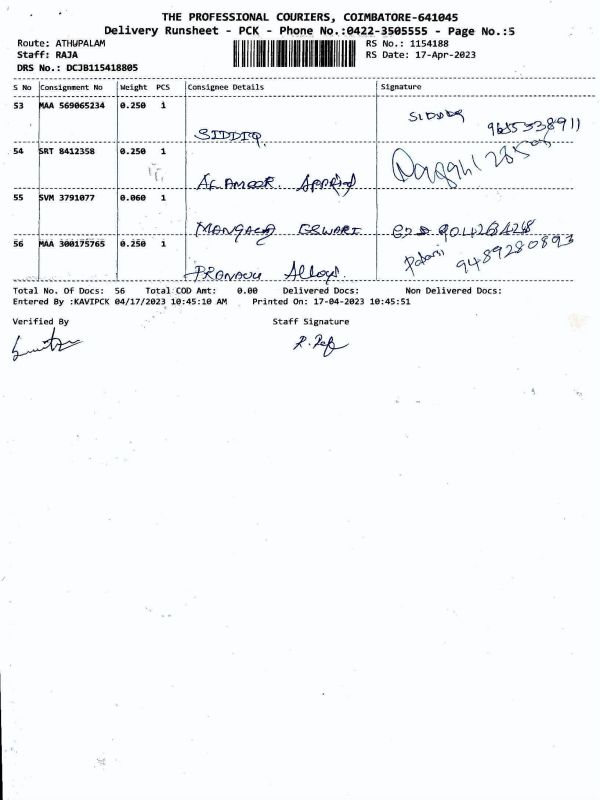 THE PROFESSIONAL COURIERS, COIMBATORE-641045
Delivery Runsheet - PCK - Phone No.:0422-3505555 - Page No.:5
Route: ATHUPALAM RS No.: 1154188
Staff: RAJA RS Date: 17-Apr-2023
DRS No.: DCJB115418805
S No Consignment No Weight PCS Consignee Details Signature
53 MAA 569065234 0.250 1
SIDDIQ 9655538911
54 SRT 8412358 0.250 1
AL AMEER
55 SVM 3791077 0.060 1
56 MAA 300175765 0.250 1
PRANAVU Alloys 9489280893
Total No. Of Docs: 56 Total COD Amt: 0.00 Delivered Docs: Non Delivered Docs:
Entered By :KAVIPCK 04/17/2023 10:45:10 AM Printed On: 17-04-2023 10:45:51
Verified By Staff Signature